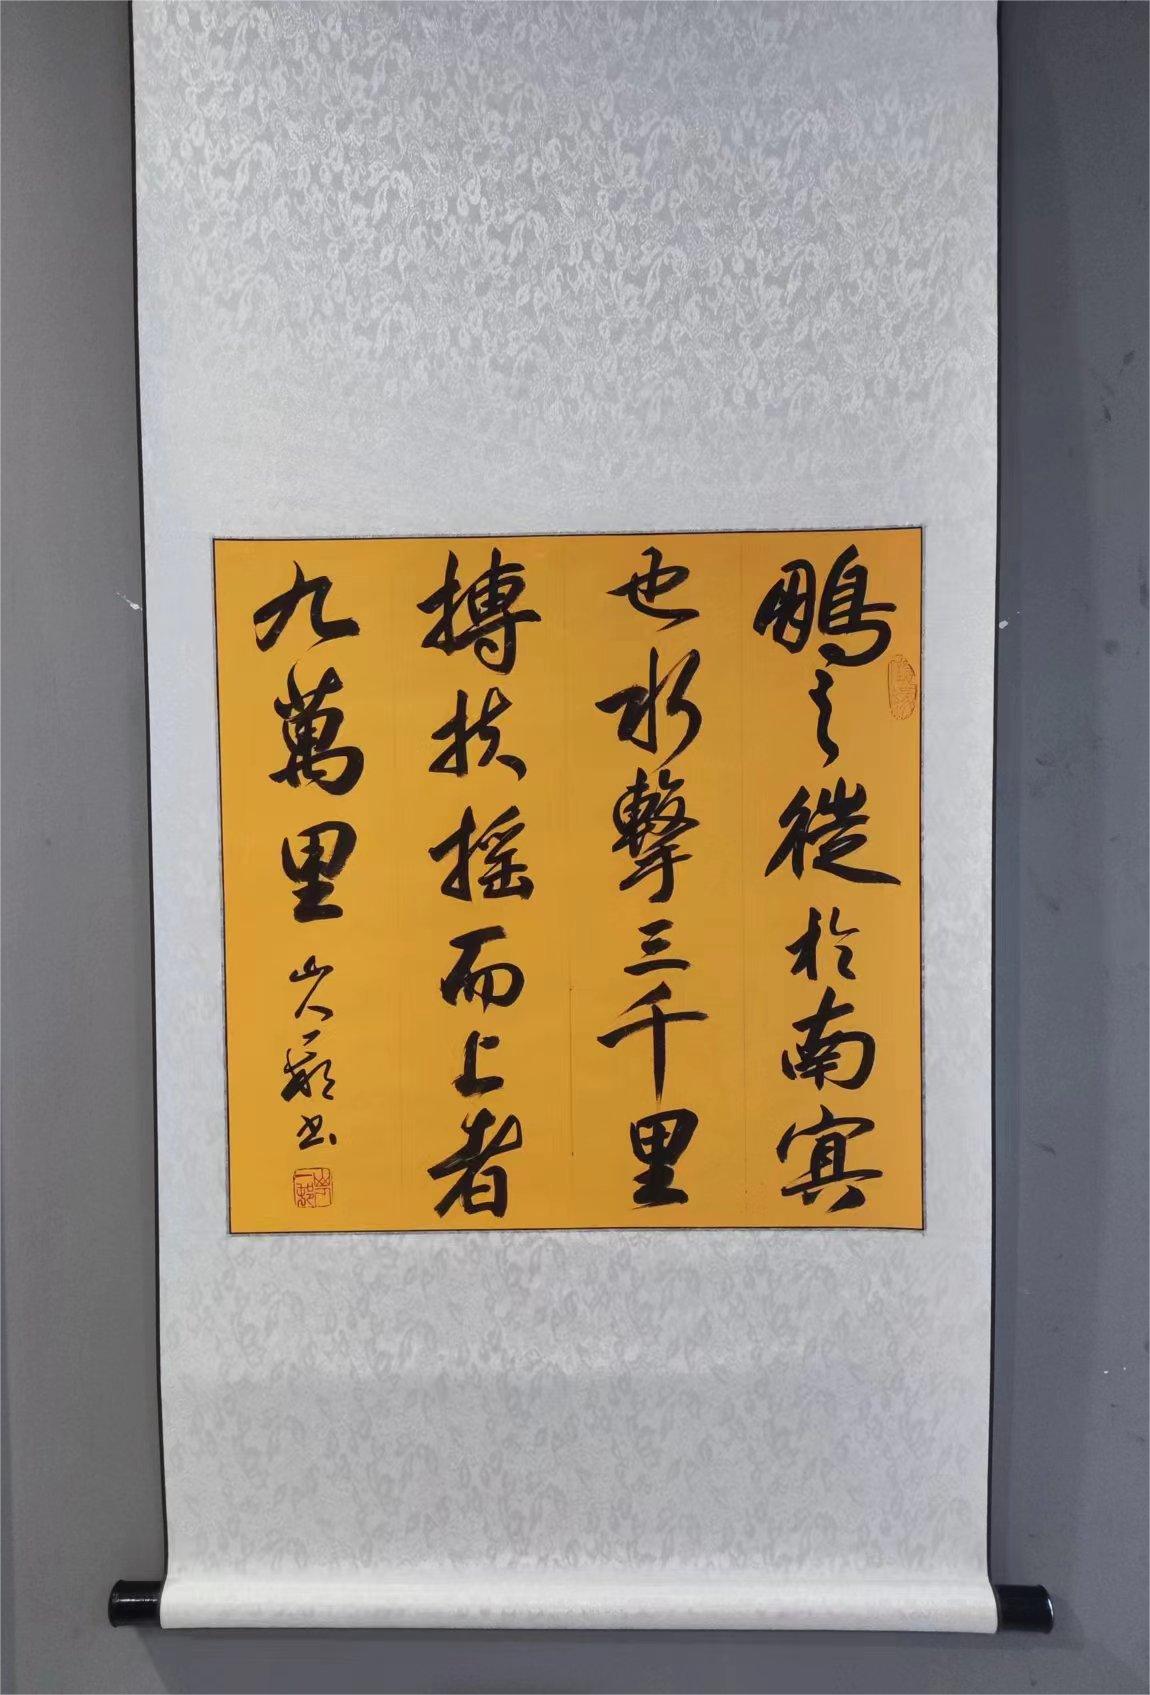 鵬之徙於南冥
也水擊三千里
摶扶摇而上者
九萬里
书